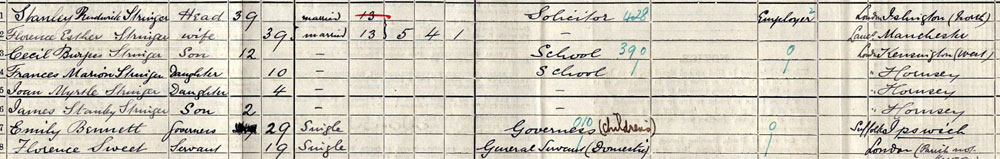 1 Stanley Rudwick Stringer Head 39 married 13 Solicitor 428 Employer 2 London Islington (North)
2 Florence Esther Stringer wife 39 married 13 5 4 1 — Lancs Manchester
3 Cecil Burgess Stringer Son 12 — School 390 London Kensington (West)
4 Frances Marion Stringer Daughter 10 — School " Hornsey
5 Joan Myrtle Stringer Daughter 4 — " Hornsey
6 James Stanley Stringer Son 2 — " Hornsey
7 Emily Bennett Governess 29 Single Governess (children's) 010 Suffolk Ipswich
8 Florence Sweet Servant 19 Single General Servant (Domestic) London (Parish not